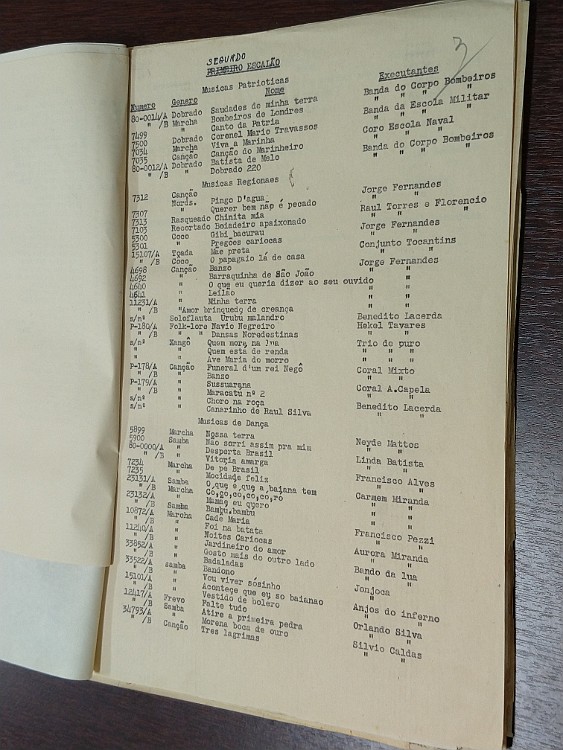 3
SEGUNDO
PRIMEIRO ESCALÃO
Musicas Patrioticas
Numero Genero Nome Executantes
80-0014/A Dobrado Saudades de minha terra Banda do Corpo Bombeiros
" /B Marcha Bombeiros de Londres " " " "
7499 " Canto da Patria Banda da Escola Militar
7500 Dobrado Coronel Mario Travassos " " " "
7034 Marcha Viva a Marinha Coro Escola Naval
7035 Canção Canção do Marinheiro " " "
80-0012/A Dobrado Batista de Melo Banda do Corpo Bombeiros
" /B " Dobrado 220 " " " "
Musicas Regionaes
7312 Canção Nords. Pingo D'agua Jorge Fernandes
" " Querer bem não é pecado " "
7307 Rasqueado Chinita mia Raul Torres e Florencio
7313 Recortado Boiadeiro apaixonado " " "
7103 Coco Gibi bacurau Jorge Fernandes
5300 " Pregões cariocas " "
5301 Toada Mãe preta Conjunto Tocantins
15107/A Coco O papagaio lá de casa " "
" /B Canção Banzo Jorge Fernandes
4698 " Barraquinha de São João " "
4692 " O que eu queria dizer ao seu ouvido
4640 " Leilão " "
4641 " Minha terra " "
11231/A "Amor brinquedo de creança
" /B Soloflauta Urubu malandro Benedito Lacerda
s/nº Folk-lore Navio Negreiro Hekel Tavares
P-180/A " " Dansas Nordestinas " "
" /B Mangô Quem mora na lua Trio de puro
s/nº " Quem esta de renda " " "
" " Ave Maria do morro " " "
P-178/A Canção Funeral d'um rei Negô Coral Mixto
" /B " Banzo " "
P-179/A " Sussuarana Coral A.Capela
" /B " Maracatu nº 2 " "
s/nº " Choro na roça Benedito Lacerda
s/nº " Canarinho de Raul Silva " "
Musicas de Dança
5899 Marcha Nossa terra Neyde Mattos
5900 Samba Não sorri assim pra mim " "
80-0000/A " Desperta Brasil Linda Batista
" /B " Vitoria amarga " "
7234 Marcha De pé Brasil Francisco Alves
7235 " Mocidade feliz " "
23131/A Samba O que é que a baiana tem Carmem Miranda
" /B Marcha Có,có,có,có,có,ro " "
23132/A " Mamãe eu quero " "
" /B Samba Bambu,bambu " "
10872/A Marcha Cade Maria Francisco Pezzi
" /B " Foi na batata " "
11240/A " Noites Cariocas Aurora Miranda
" /B " Jardineiro do amor " "
33852/A " Gosto mais do outro lado Bando da lua
" /B " Badaladas " "
33522/A samba Bandono Jonjoca
" /B " Vou viver sósinho "
15101/A " Acontece que eu so baianao Anjos do inferno
" /B " Vestido de bolero " " "
12417/A Frevo Falte tudo Orlando Silva
" /B Samba Atire a primeira pedra " "
34793/A " Morena boca de ouro Silvio Caldas
" /B Canção Tres lagrimas " "